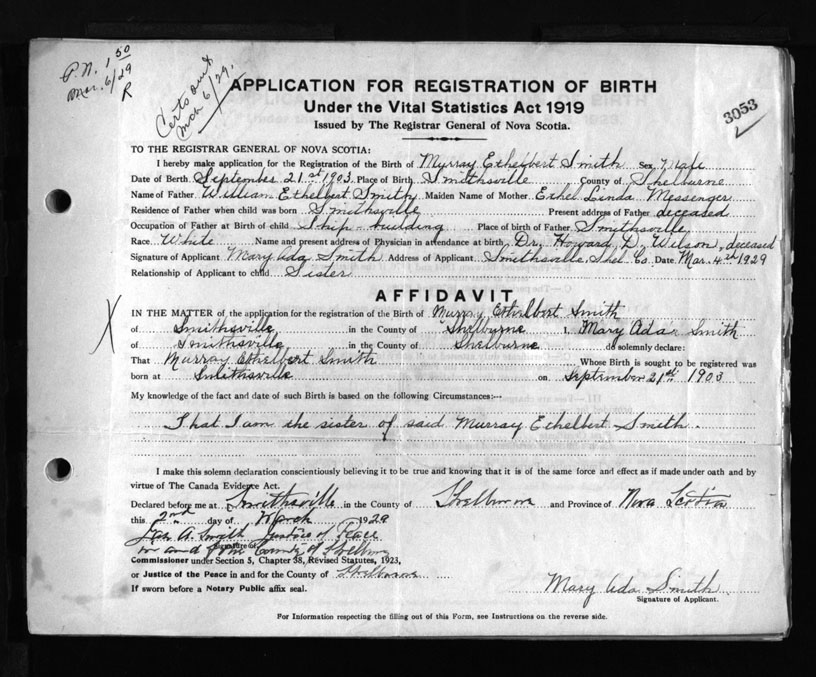 P.N. 1 50
Mar. 6/29
R
Certs out
Mch 6/29.
3053
APPLICATION FOR REGISTRATION OF BIRTH
Under the Vital Statistics Act 1919
Issued by The Registrar General of Nova Scotia.
TO THE REGISTRAR GENERAL OF NOVA SCOTIA:
I hereby make application for the Registration of the Birth of Murray Ethelbert Smith Sex Male
Date of Birth September 21st 1903 Place of Birth Smithsville County of Shelburne
Name of Father William Ethelbert Smith Maiden Name of Mother Ethel Linda Messenger
Residence of Father when child was born Smithsville Present address of Father deceased
Occupation of Father at Birth of child Ship-building Place of birth of Father Smithsville
Race White Name and present address of Physician in attendance at birth Dr. Howard D. Wilson, deceased
Signature of Applicant Mary Ada Smith Address of Applicant Smithsville, Shel. Co. Date Mar. 4th 1929
Relationship of Applicant to child Sister
AFFIDAVIT
X
IN THE MATTER of the application for the registration of the Birth of Murray Ethelbert Smith
of Smithsville in the County of Shelburne I, Mary Ada Smith
of Smithsville in the County of Shelburne do solemnly declare:
That Murray Ethelbert Smith Whose Birth is sought to be registered was
born at Smithsville on September 21st 1903
My knowledge of the fact and date of such Birth is based on the following Circumstances:—
That I am the sister of said Murray Ethelbert Smith.
I make this solemn declaration conscientiously believing it to be true and knowing that it is of the same force and effect as if made under oath and by
virtue of The Canada Evidence Act.
Declared before me at Smithsville in the County of Shelburne and Province of Nova Scotia
this 2nd day of March 1929
Jas. A. Smith Justice of Peace
in and for County of Shelburne
Signature of
Commissioner under Section 5, Chapter 38, Revised Statutes, 1923,
or Justice of the Peace in and for the County of Shelburne
If sworn before a Notary Public affix seal.
Mary Ada Smith
Signature of Applicant.
For Information respecting the filling out of this Form, see Instructions on the reverse side.